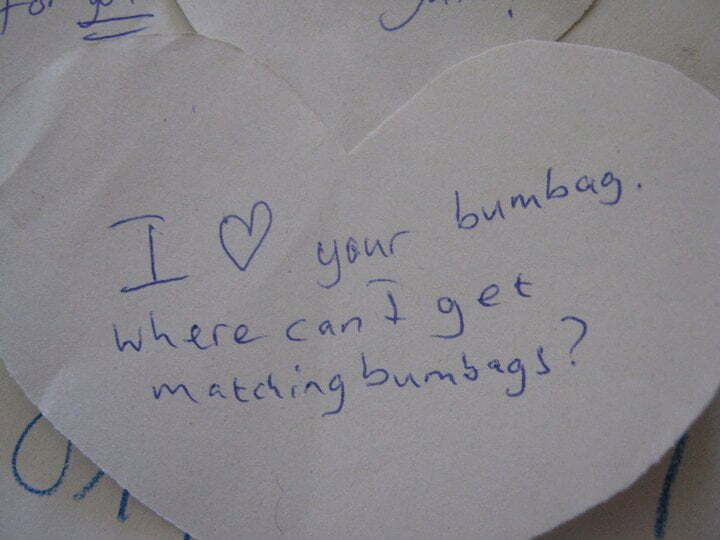 for you
I ♡ your bumbag.
where can I get
matching bumbags?